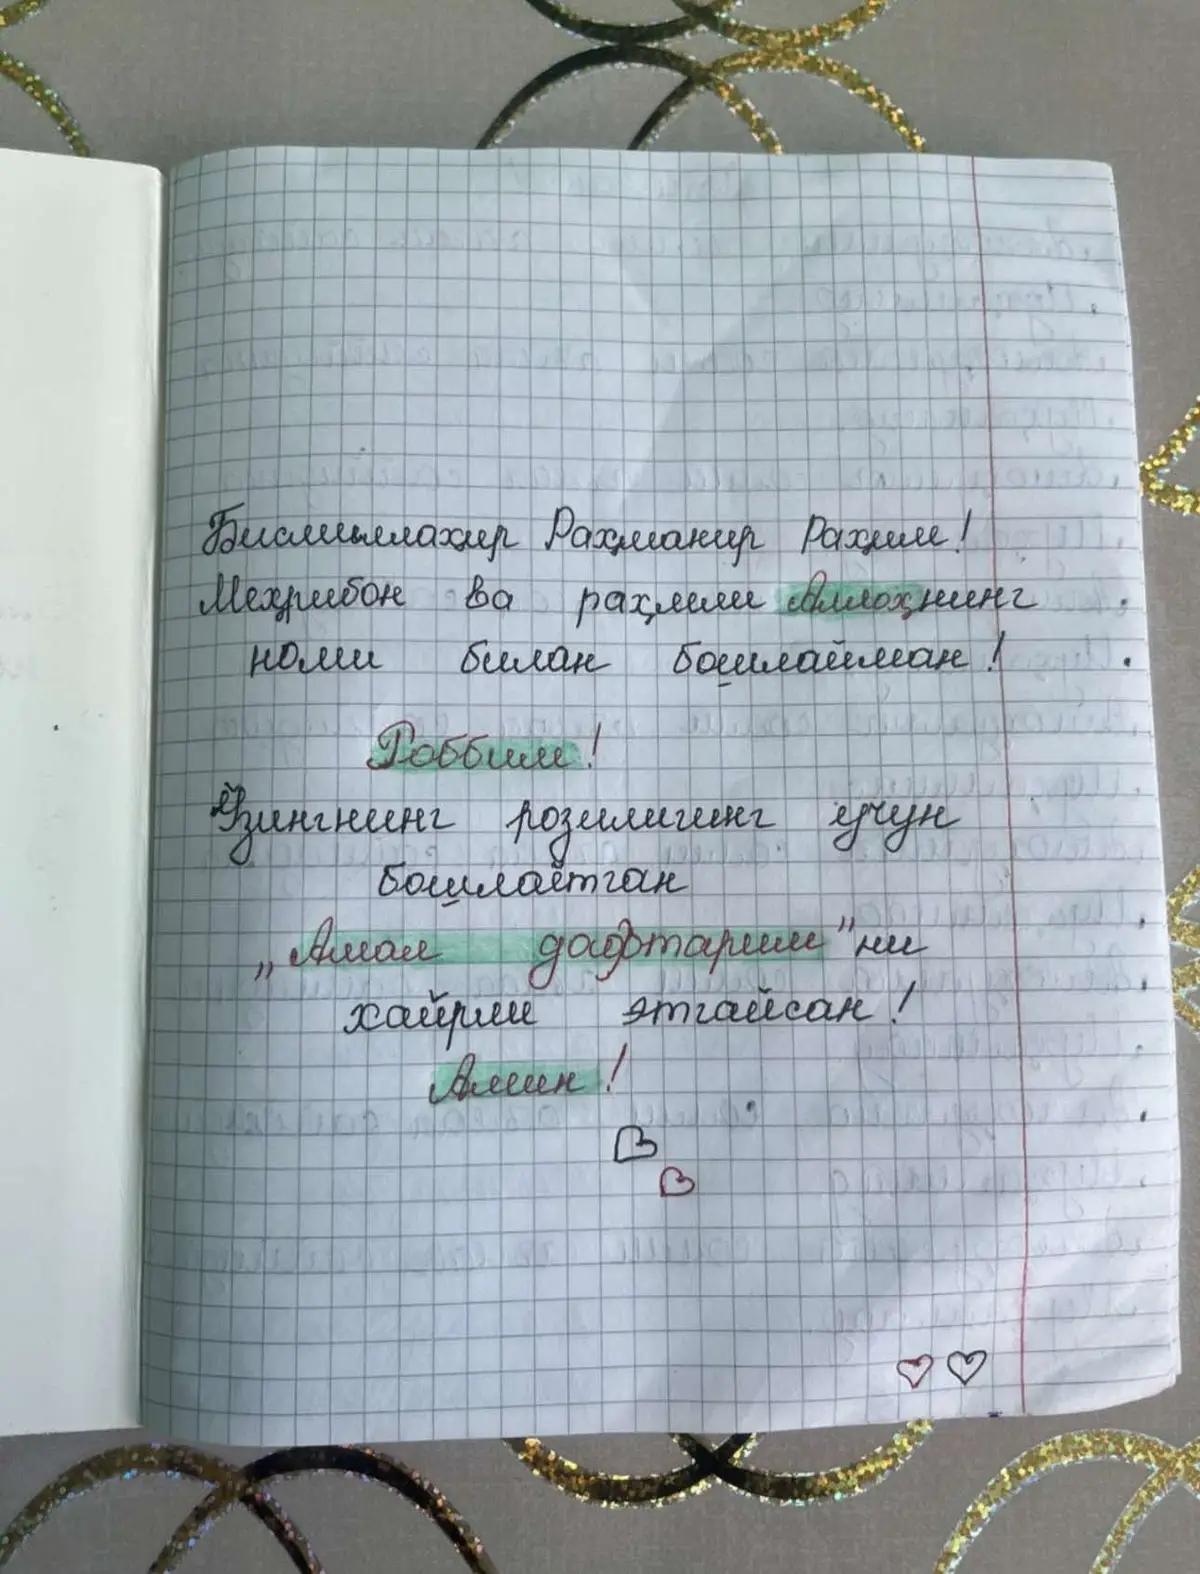 Бисмиллаҳир Раҳманир Раҳим!
Меҳрибон ва раҳмли Аллоҳнинг
номи билан бошлайман!
Роббим!
Ўзингнинг розилигинг учун
бошлаётган
„Амал дафтарим"ни
хайрли этгайсан!
Амин!